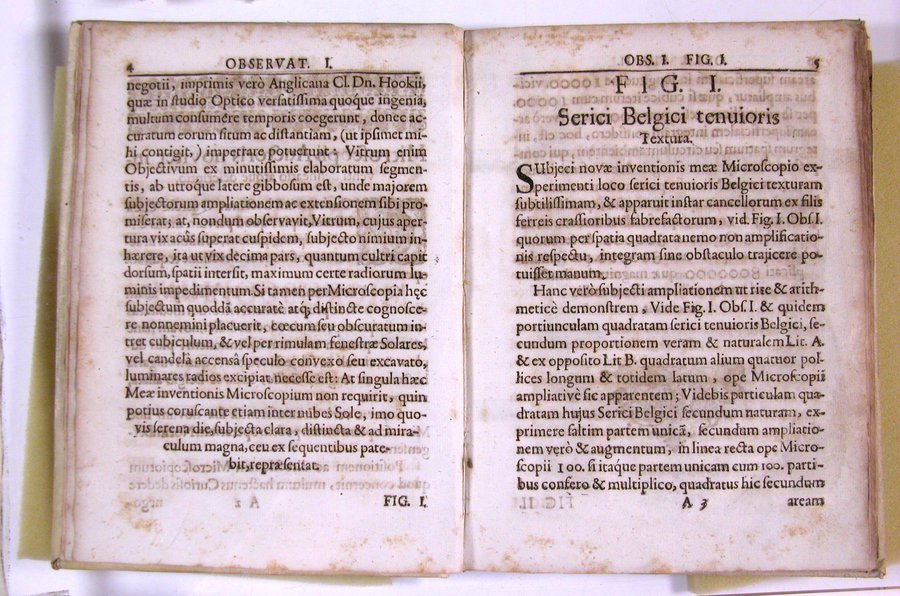 4 OBSERVAT. I.
negotii, imprimis verò Anglicana Cl. Dn. Hookii,
quæ in studio Optico versatissima quoque ingenia,
multum consumêre temporis coegerunt, donec ac-
curatum eorum situm ac distantiam, (ut ipsimet mi-
hi contigit,) impetrare potuerunt: Vitrum enim
Objectivum ex minutissimis elaboratum segmen-
tis, ab utroque latere gibbosum est, unde majorem
subjectorum ampliationem ac extensionem sibi pro-
miserat; at, nondum observavit, Vitrum, cujus aper-
tura vix acûs superat cuspidem, subjecto nimium in-
hærere, ita ut vix decima pars, quantum cultri capit
dorsum, spatii intersit, maximum certe radiorum lu-
minis impedimentum. Si tamen per Microscopia hęc
subjectum quoddã accuratè atq́; distincte cognosce-
re nonnemini placuerit, cœcum seu obscuratum in-
tret cubiculum, & vel per rimulam fenestræ Solares,
vel candelâ accensâ speculo convexo seu excavato,
luminares radios excipiat necesse est: At singula hæc
Meæ inventionis Microscopium non requirit, quin
potius coruscante etiam inter nubes Sole, imo quo-
vis serena die, subjecta clara, distincta & ad mira-
culum magna, ceu ex sequentibus pate-
bit, repræsentat.
A 2 FIG. I.
OBS. I. FIG. I. 5
FIG. I.
Serici Belgici tenuioris
Textura.
SUbjeci novæ inventionis meæ Microscopio ex-
perimenti loco serici tenuioris Belgici texturam
subtilissimam, & apparuit instar cancellorum ex filis
ferreis crassioribus fabrefactorum, vid. Fig. I. Obs. I.
quorum per spatia quadrata nemo non amplificatio-
nis respectu, integram sine obstaculo trajicere po-
tuisset manum.
Hanc verò subjecti ampliationem ut rite & arith-
meticè demonstrem, Vide Fig. I. Obs. I. & quidem
portiunculam quadratam serici tenuioris Belgici, se-
cundum proportionem veram & naturalem Lit. A.
& ex opposito Lit B. quadratum alium quatuor pol-
lices longum & totidem latum, ope Microscopii
ampliativè sic apparentem; Videbis particulam qua-
dratam hujus Serici Belgici secundum naturam, ex-
primere saltim partem unicã, secundum ampliatio-
nem verò & augmentum, in linea recta ope Micro-
scopii 100. si itaque partem unicam cum 100. parti-
bus confero & multiplico, quadratus hic secundum
A 3 aream